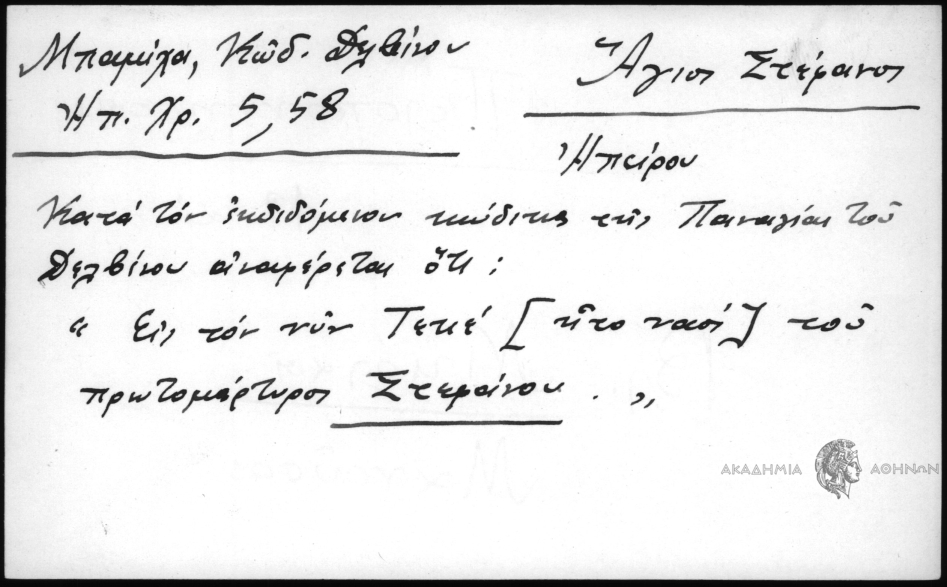 Μπαμίχα, Κῶδ. Δελβίνου
Ἠπ. Χρ. 5,58
Ἅγιος Στέφανος
Ἠπείρου
Κατά τόν ἐκδιδόμενον κώδικα τῆς Παναγίας τοῦ
Δελβίνου ἀναφέρεται ὅτι :
“ Εἰς τόν νῦν Τεκέ [ἦτο ναός] τοῦ
πρωτομάρτυρος Στεφάνου . „
ΑΚΑΔΗΜΙΑ ΑΘΗΝΩΝ